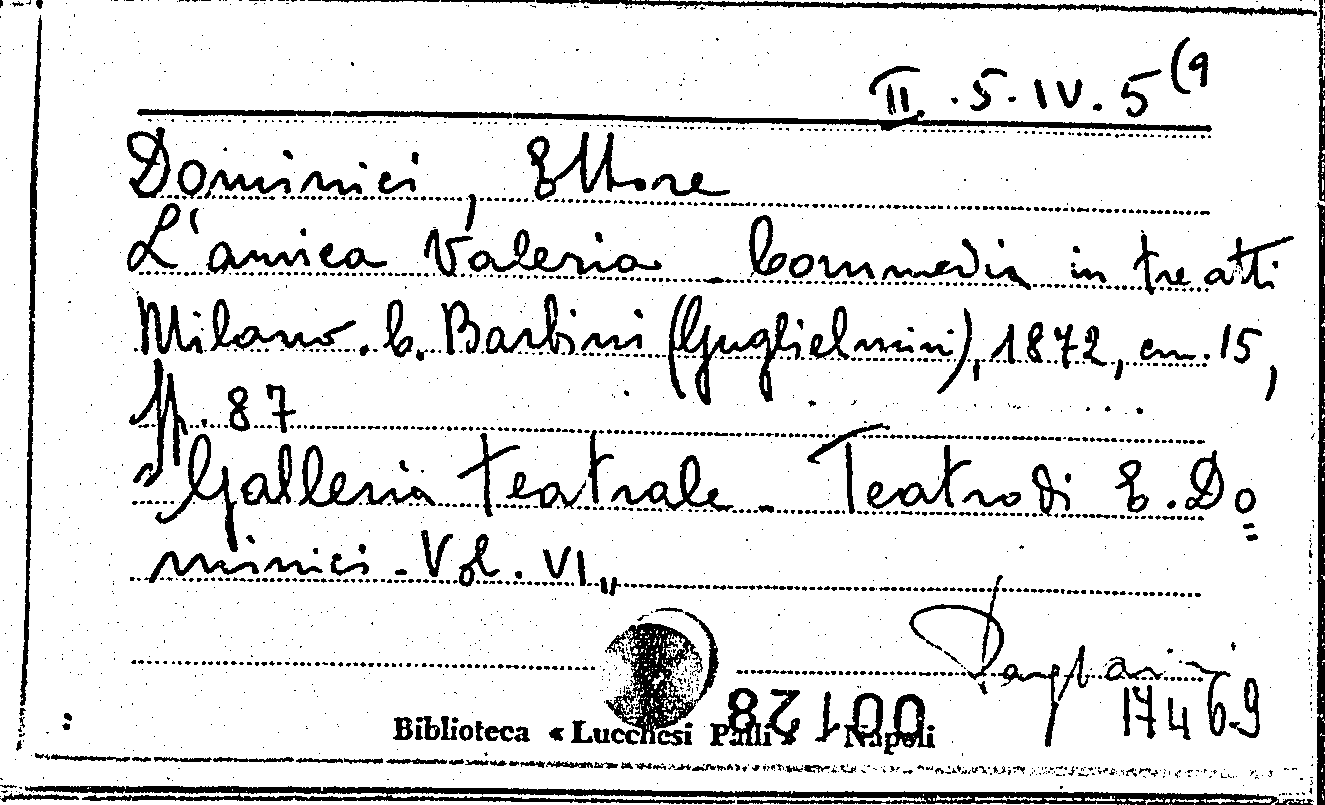 II. 5. IV. 5 (9
Dominici, Ettore
L'amica Valeria - Commedia in tre atti
Milano. C. Barbini (Guglielmini), 1872, cm. 15,
pp. 87
"Galleria teatrale - Teatro di E. Do=
minici - Vol. VI"
17469
00128
Biblioteca « Lucchesi Palli » - Napoli